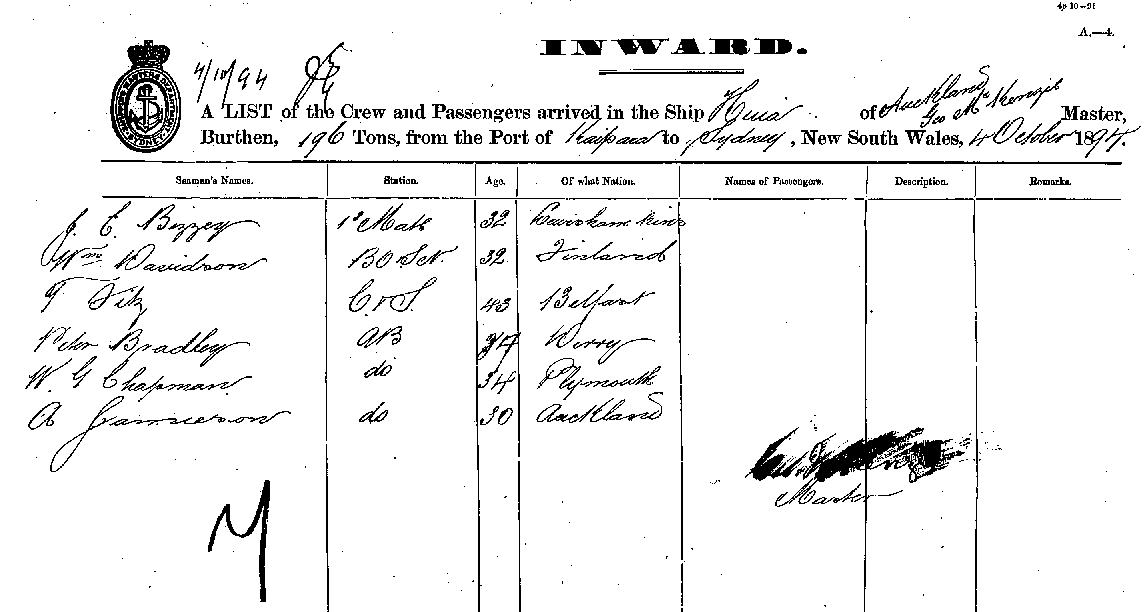 4p 10—91
A.—4.
INWARD.
4/10/94
A LIST of the Crew and Passengers arrived in the Ship Huia of Auckland Geo McKenzie Master,
Burthen, 196 Tons, from the Port of Kaipara to Sydney, New South Wales, 4 October 1894.
Seaman's Names. Station. Age. Of what Nation. Names of Passengers. Description. Remarks.
J. C. Bizzey 1st Mate 32
Wm Davidson BOSN. 32 Finland
T Fitz C & S. 43 Belfast
Peter Bradley AB Derry
W. G Chapman do 34 Plymouth
A Jamieson do 30 Auckland
Master